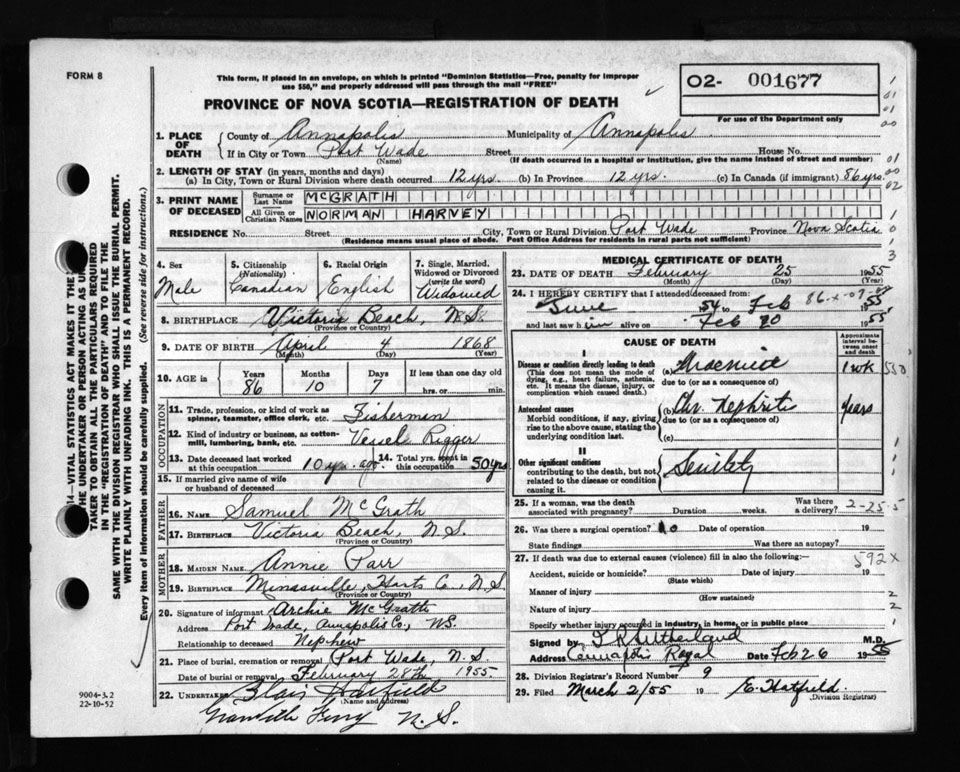 FORM 8
This form, if placed in an envelope, on which is printed "Dominion Statistics—Free, penalty for improper
use $50," and properly addressed will pass through the mail "FREE"
PROVINCE OF NOVA SCOTIA—REGISTRATION OF DEATH
02- 001677
For use of the Department only
1. PLACE OF DEATH
County of Annapolis Municipality of Annapolis
If in City or Town Port Wade Street House No.
(Name) (If death occurred in a hospital or institution, give the name instead of street and number)
2. LENGTH OF STAY (in years, months and days)
(a) In City, Town or Rural Division where death occurred 12 yrs. (b) In Province 12 yrs. (c) In Canada (if immigrant) 86 yrs.
3. PRINT NAME OF DECEASED
Surname or Last Name MCGRATH
All Given or Christian Names NORMAN HARVEY
RESIDENCE No. Street City, Town or Rural Division Port Wade Province Nova Scotia
(Residence means usual place of abode. Post Office Address for residents in rural parts not sufficient)
4. Sex
Male
5. Citizenship
(Nationality)
Canadian
6. Racial Origin
English
7. Single, Married, Widowed or Divorced
(write the word)
Widowed
8. BIRTHPLACE Victoria Beach, N.S.
(Province or Country)
9. DATE OF BIRTH April 4 1868
(Month) (Day) (Year)
10. AGE in Years Months Days If less than one day old
86 10 7 hrs. or min.
OCCUPATION
11. Trade, profession, or kind of work as
spinner, teamster, office clerk, etc. Fisherman
12. Kind of industry or business, as cotton-
mill, lumbering, bank, etc. Vessel Rigger
13. Date deceased last worked
at this occupation 10 yrs. ago.
14. Total yrs. spent in
this occupation 50 yrs
15. If married give name of wife
or husband of deceased
FATHER
16. NAME Samuel McGrath
17. BIRTHPLACE Victoria Beach, N.S.
(Province or Country)
MOTHER
18. MAIDEN NAME Annie Parr
19. BIRTHPLACE Minasville, Hants Co. N.S.
(Province or Country)
20. Signature of informant Archie McGrath
Address Port Wade, Annapolis Co., N.S.
Relationship to deceased Nephew
21. Place of burial, cremation or removal Port Wade, N.S.
Date of burial or removal February 28th 1955.
22. UNDERTAKER Blair Hatfield
(Name and address)
Granville Ferry N.S.
MEDICAL CERTIFICATE OF DEATH
23. DATE OF DEATH February 25 1955
(Month) (Day)
24. I HEREBY CERTIFY that I attended deceased from:
June 1954 to Feb 1955
and last saw him alive on Feb 20 1955
CAUSE OF DEATH
Approximate interval between onset and death
I
Disease or condition directly leading to death
(This does not mean the mode of
dying, e.g., heart failure, asthenia,
etc. It means the disease, injury, or
complication which caused death.)
(a) 1 wk
due to (or as a consequence of)
Antecedent causes
Morbid conditions, if any, giving
rise to the above cause, stating the
underlying condition last.
(b) Chr. Nephritis years
due to (or as a consequence of)
(c)
II
Other significant conditions
contributing to the death, but not
related to the disease or condition
causing it.
Senility
25. If a woman, was the death
associated with pregnancy? Duration weeks. Was there a delivery?
2-25-5
26. Was there a surgical operation? no Date of operation 19
State findings Was there an autopsy?
27. If death was due to external causes (violence) fill in also the following:—
592X
Accident, suicide or homicide? Date of injury 19
(State which)
Manner of injury
(How sustained)
Nature of injury
Specify whether injury occurred in industry, in home, or in public place
Signed by Sutherland M.D.
Address Annapolis Royal Date Feb 26 1955
28. Division Registrar's Record No. 9
29. Filed March 2/55 19 E. Hatfield.
(Division Registrar)
9004-3.2
22-10-52
SAME WITH THE DIVISION REGISTRAR WHO SHALL ISSUE THE BURIAL PERMIT.
WRITE PLAINLY WITH UNFADING INK. THIS IS A PERMANENT RECORD.
Every item of information should be carefully supplied. (See reverse side for instructions.)